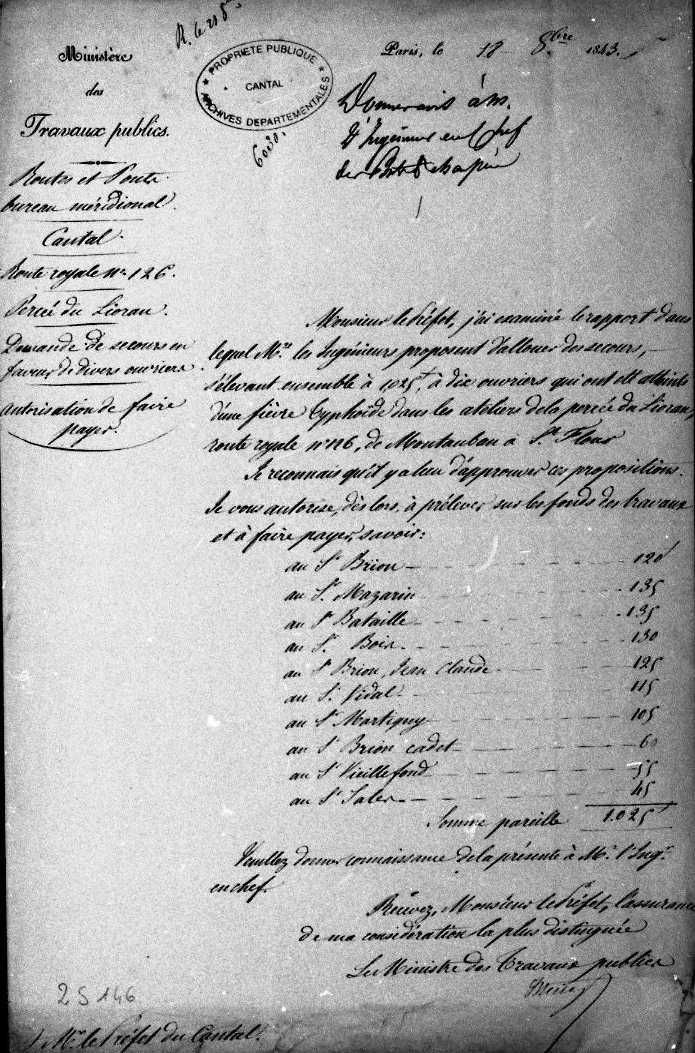 R. le 21 8bre
Ministère
des
Travaux publics.
Routes et Ponts
bureau méridional.
Cantal.
Route royale No 126.
Percée du Lioran.
Demande de secours en
faveur de divers ouvriers
autorisation de faire
payer.
PROPRIETE PUBLIQUE
CANTAL
ARCHIVES DEPARTEMENTALES
6030.
Paris, le 18 8bre 1843.
Donner avis à M.
l'Ingénieur en Chef
des Ponts &
Monsieur le Préfet, j'ai examiné le rapport dans
lequel Mrs les Ingénieurs proposent d'allouer des secours,
s'élevant ensemble à 1025f, à dix ouvriers qui ont été atteints
d'une fièvre typhoïde dans les ateliers de la percée du Lioran,
route royale no 126, de Montauban à St Flour
Je reconnais qu'il y a lieu d'approuver ces propositions.
Je vous autorise, dès lors, à prélever sur les fonds des travaux
et à faire payer, savoir:
au Sr Brion 120f
au Sr Mazarin 135
au Sr Bataille 135
au Sr Boix 130
au Sr Brion, Jean Claude 125
au Sr Vidal 115
au Sr Martigny 105
au Sr Brion cadet 60
au Sr Vieillefond 55
au Sr Saler 45
Somme pareille 1.025f
Veuillez donner connaissance de la présente à Mr l'Ingr
en chef.
Recevez, Monsieur le Préfet, l'assurance
de ma considération la plus distinguée
Le Ministre des Travaux publics
2 S 146
Mr. le Préfet du Cantal.